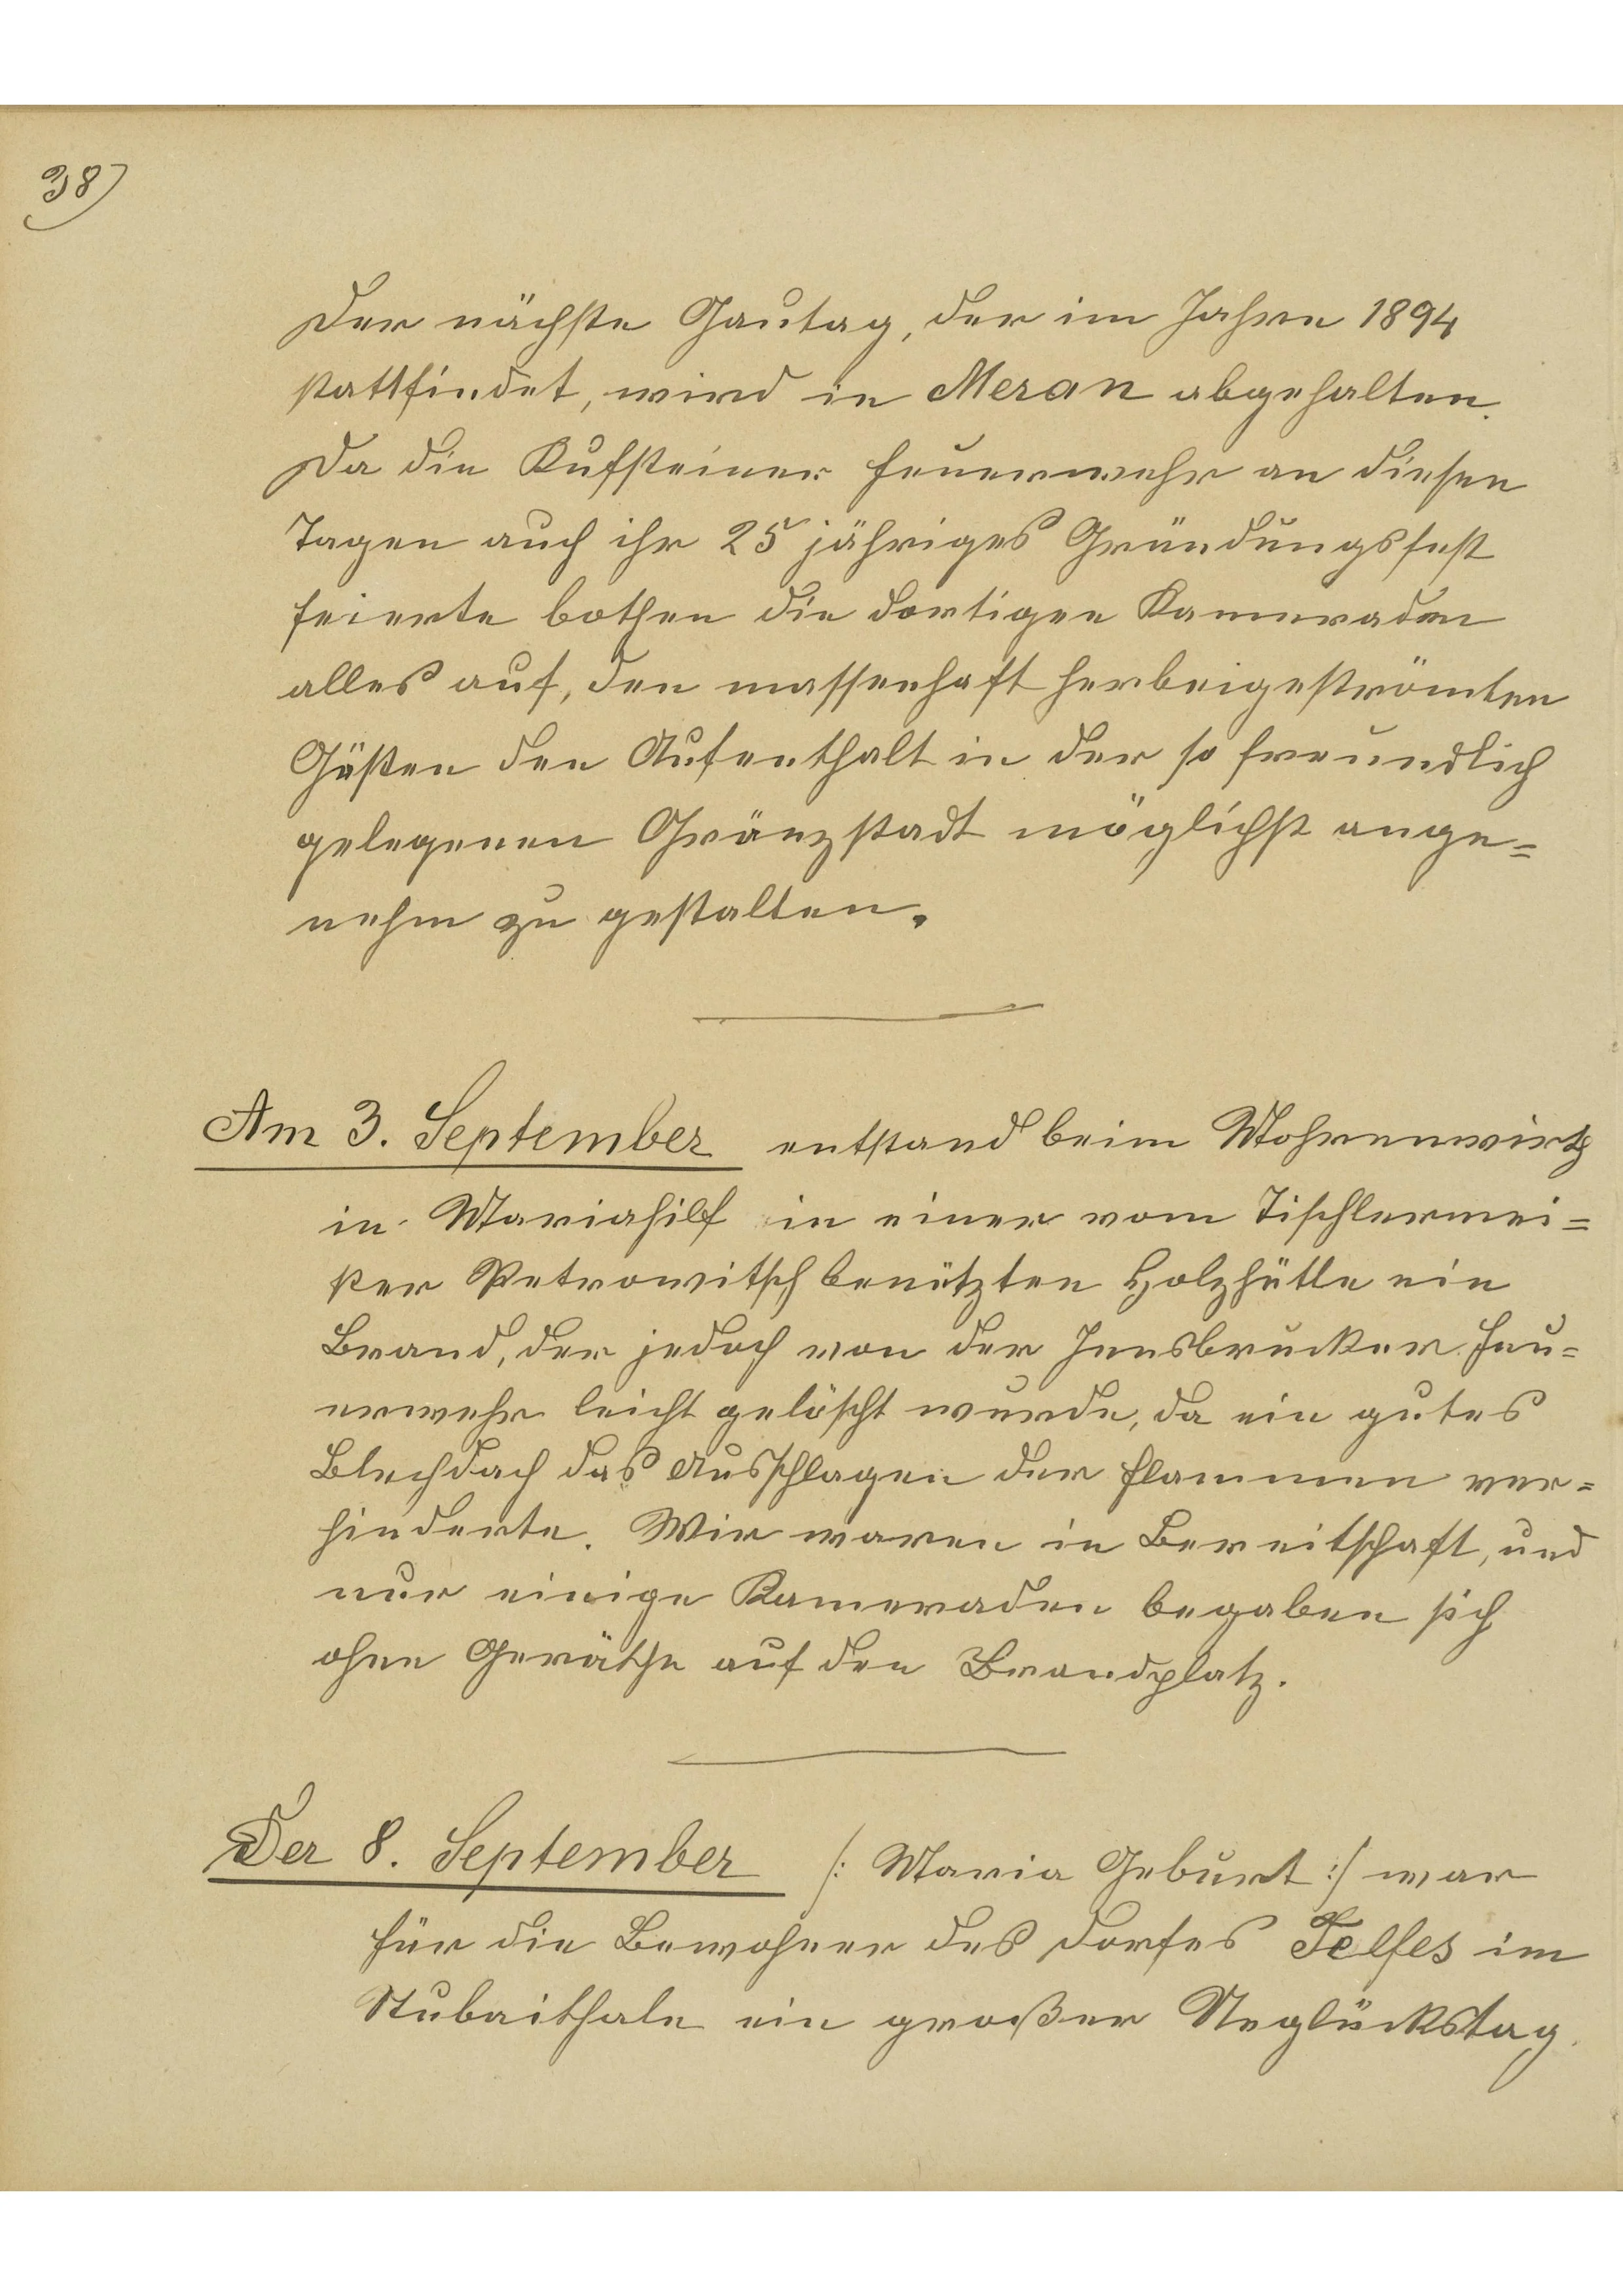 38)
Der nächste Gautag, der im Jahre 1894
stattfindet, wird in Meran abgehalten.
Da die Kufsteiner Feuerwehr an diesen
Tagen auch ihr 25 jähriges Gründungsfest
feierte bothen die dortigen Kameraden
alles auf, den massenhaft herbeigeströmten
Gästen den Aufenthalt in der so freundlich
gelegenen Gränzstadt möglichst ange=
nehm zu gestalten.
Am 3. September entstand beim Mohrenwirth
in Mariahilf in einer vom Tischlermei=
ster Petrowitsch benützten Holzhütte ein
Brand, der jedoch von der Innsbrucker Feu=
erwehr leicht gelöscht wurde, da ein gutes
Blechdach das Ausschlagen der Flammen ver=
hinderte. Wir waren in Bereitschaft, und
nur einige Kameraden begaben sich
ohne Geräthe auf den Brandplatz.
Der 8. September /: Maria Geburt :/ war
für die Bewohner des Dorfes Telfes im
Stubaithale ein großer Unglückstag.